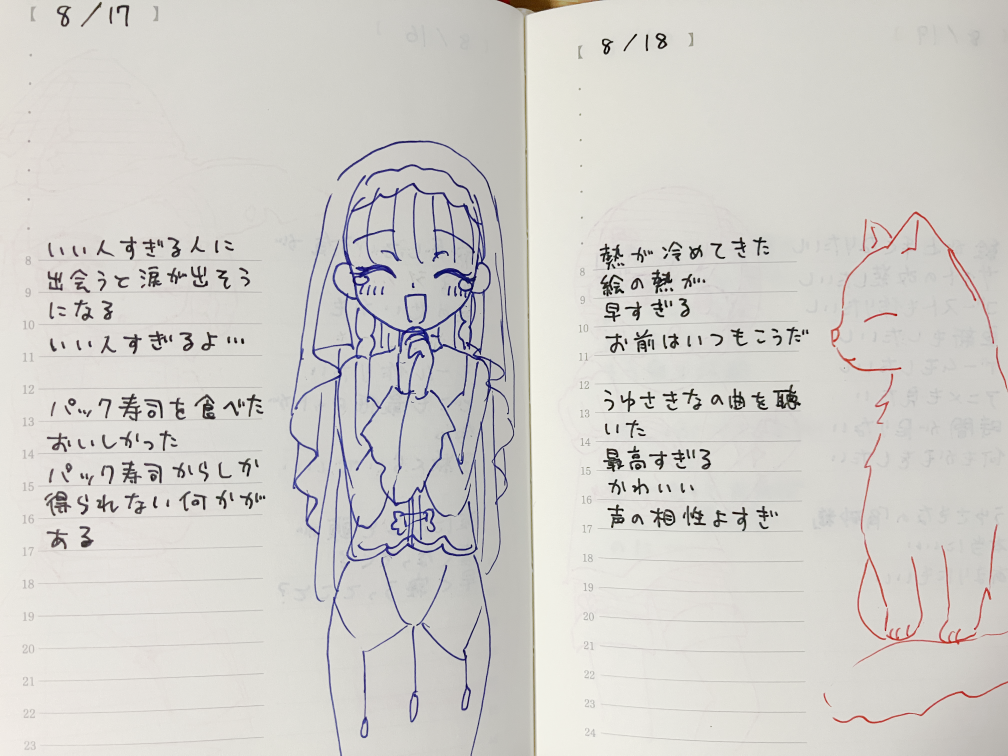 【 8/17 】
8
いい人すぎる人に
9
出会うと涙が出そう
10
になる
11
いい人すぎるよ…
12
13
パック寿司を食べた
14
おいしかった
15
パック寿司からしか
16
得られない何かが
17
ある
18
19
20
21
22
23
【 8/18 】
8
熱が冷めてきた
9
絵の熱が
10
早すぎる
11
お前はいつもこうだ
12
13
うゆさきなの曲を聴
14
いた
15
最高すぎる
16
かわいい
17
声の相性よすぎ
18
19
20
21
22
23
24